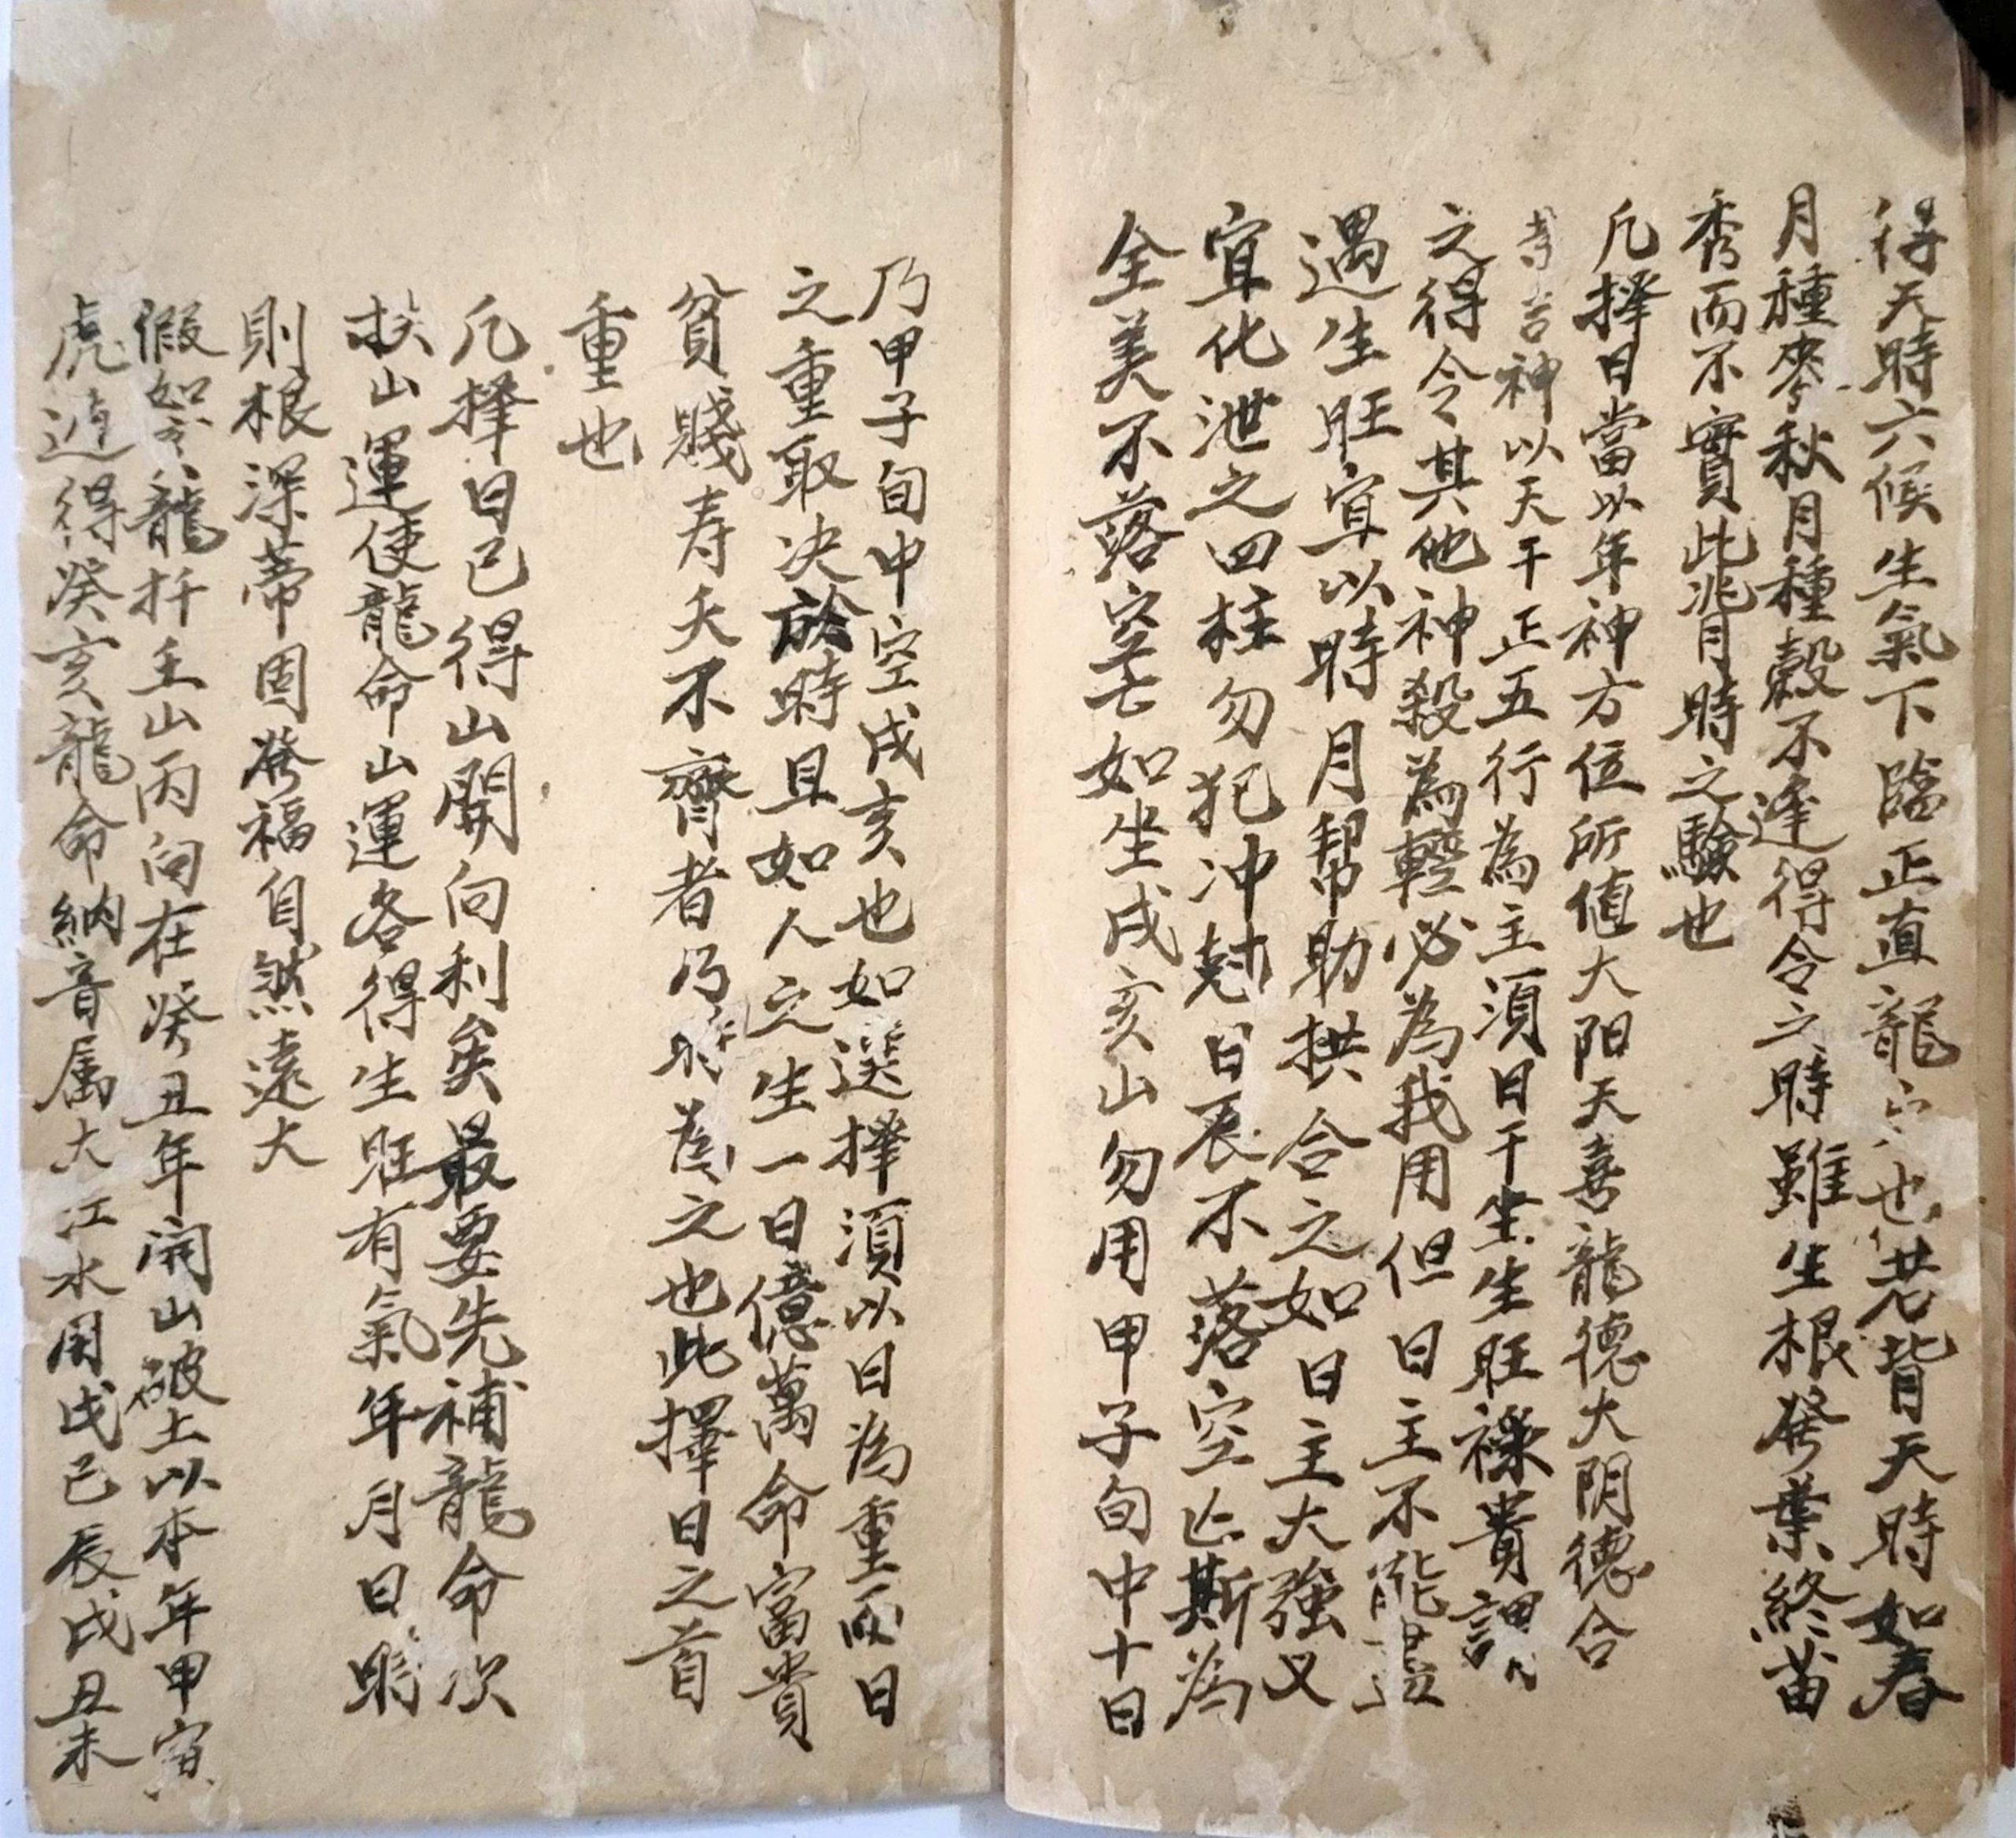 得天時六候生氣下臨正直龍穴也若背天時如春
月種麥秋月種穀不逢得令之時雖生根發葉終苗
秀而不實此兆月時之驗也
凡擇日當以年神方位所值大阳天喜龍德大阴德合
等吉神以天干正五行為主須日干坐生旺祿貴謂
之得令其他神殺為輕必為我用但日主不能盡
遇生旺宜以時月幫助拱合之如日主大強又
宜化泄之四柱勿犯冲尅日辰不落空亡斯為
全美不落空亡如坐戌亥山勿用甲子旬中十日
乃甲子旬中空戌亥也如選擇須以日為重而日
之重取决於時且如人之生一日億萬命富貴
貧賤寿夭不齊者乃時為之也此擇日之首
重也
凡擇日已得山開向利矣最要先補龍命次
扶山運使龍命山運各得生旺有氣年月日時
則根深蒂固發福自然遠大
假如亥龍扦壬山丙向在癸丑年開山破土以本年甲寅
虎遁得癸亥龍命納音属大江水用戊己辰戌丑未